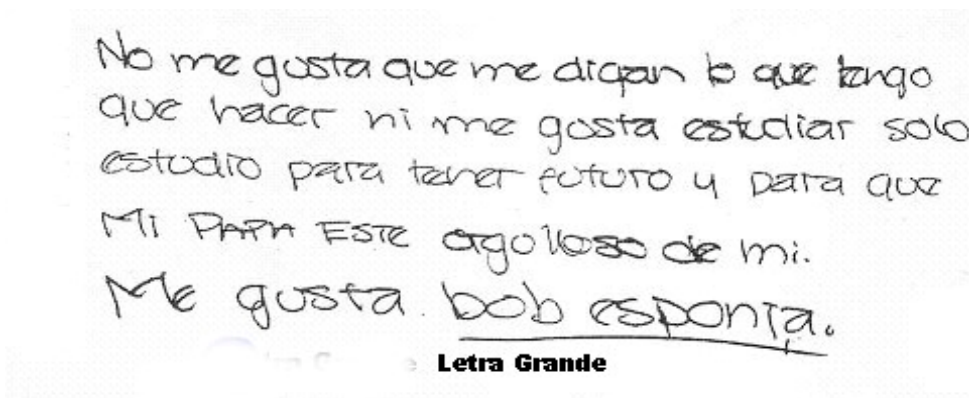 No me gusta que me digan lo que tengo
que hacer ni me gusta estudiar solo
estudio para tener futuro y para que
Mi PAPA ESTE orgolloso de mi.
Me gusta bob esponja.
Letra Grande